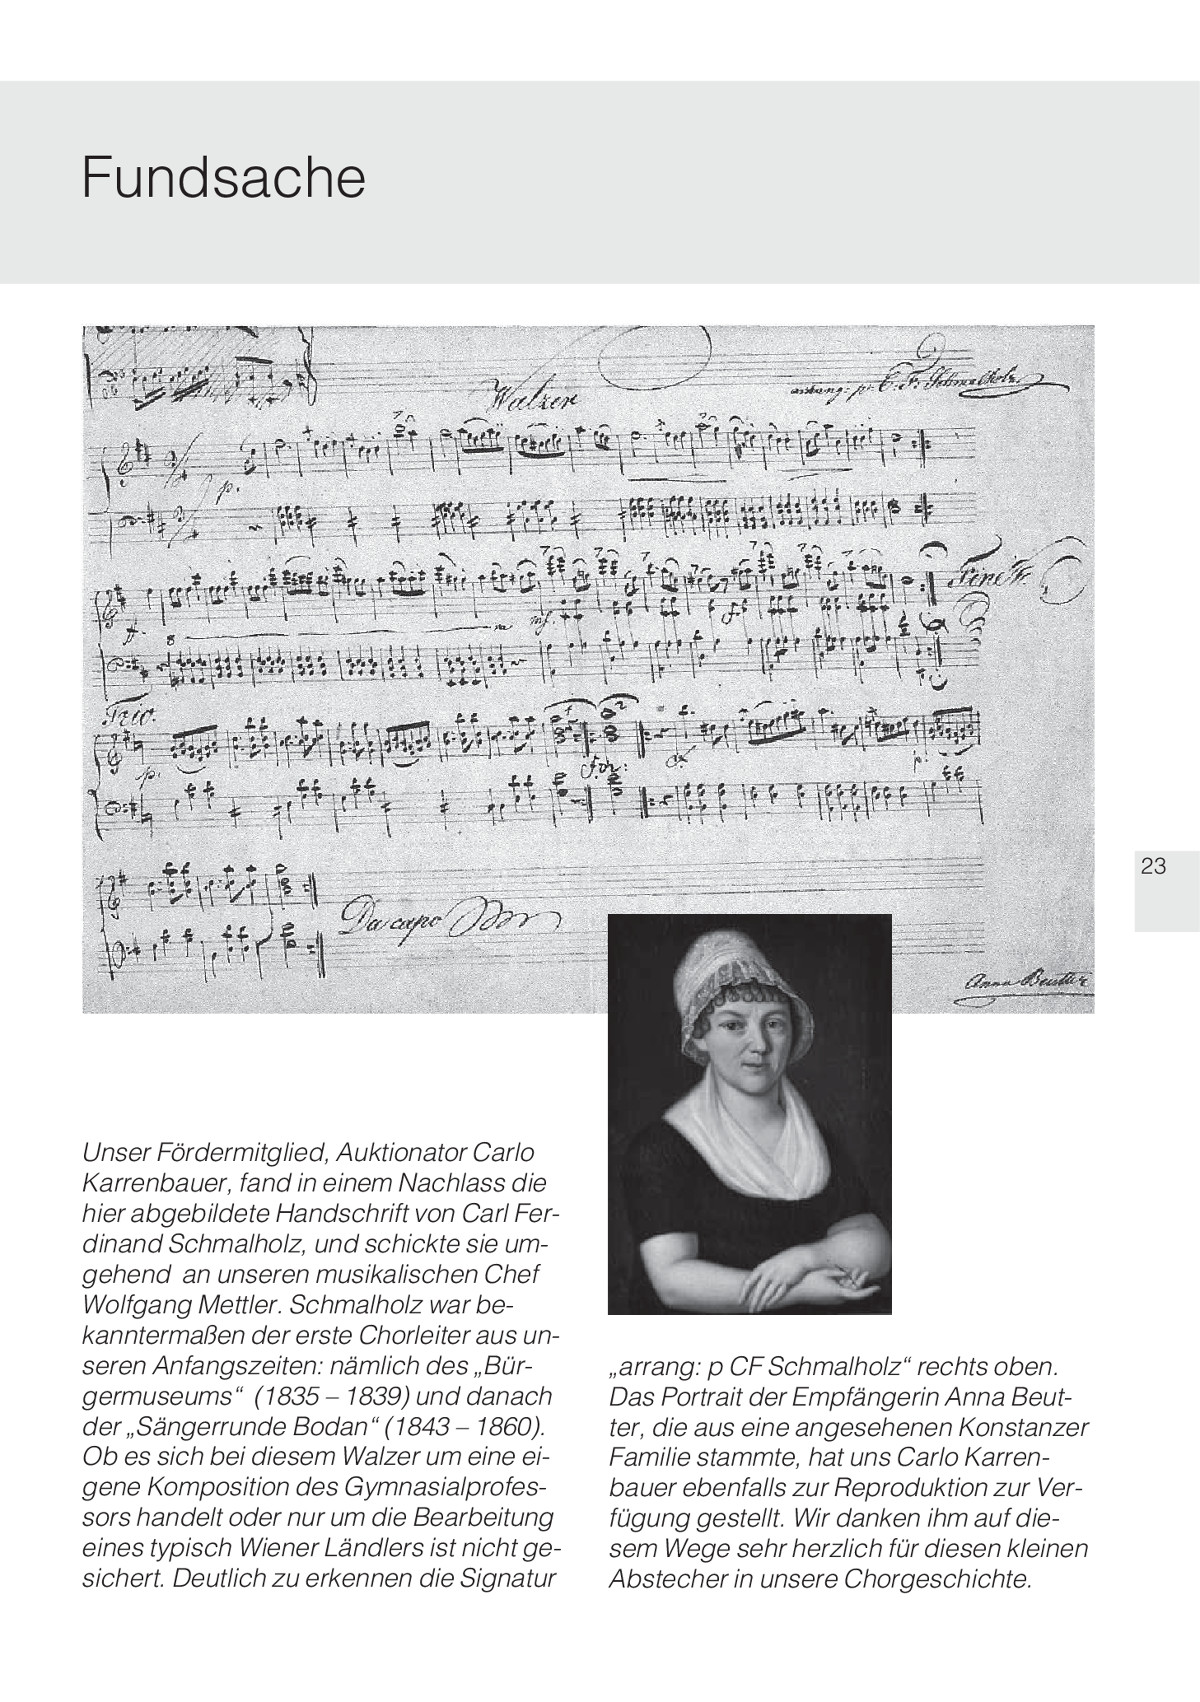 Fundsache
Walzer
arrang: p: C. F. Schmalholz
p.
Fine
ff.
8
mf.
Trio.
p.
for:
p:
Da capo
Anna Beutter
23
Unser Fördermitglied, Auktionator Carlo
Karrenbauer, fand in einem Nachlass die
hier abgebildete Handschrift von Carl Fer-
dinand Schmalholz, und schickte sie um-
gehend  an unseren musikalischen Chef
Wolfgang Mettler. Schmalholz war be-
kanntermaßen der erste Chorleiter aus un-
seren Anfangszeiten: nämlich des „Bür-
germuseums“  (1835 – 1839) und danach
der „Sängerrunde Bodan“ (1843 – 1860).
Ob es sich bei diesem Walzer um eine ei-
gene Komposition des Gymnasialprofes-
sors handelt oder nur um die Bearbeitung
eines typisch Wiener Ländlers ist nicht ge-
sichert. Deutlich zu erkennen die Signatur
„arrang: p CF Schmalholz“ rechts oben.
Das Portrait der Empfängerin Anna Beut-
ter, die aus eine angesehenen Konstanzer
Familie stammte, hat uns Carlo Karren-
bauer ebenfalls zur Reproduktion zur Ver-
fügung gestellt. Wir danken ihm auf die-
sem Wege sehr herzlich für diesen kleinen
Abstecher in unsere Chorgeschichte.